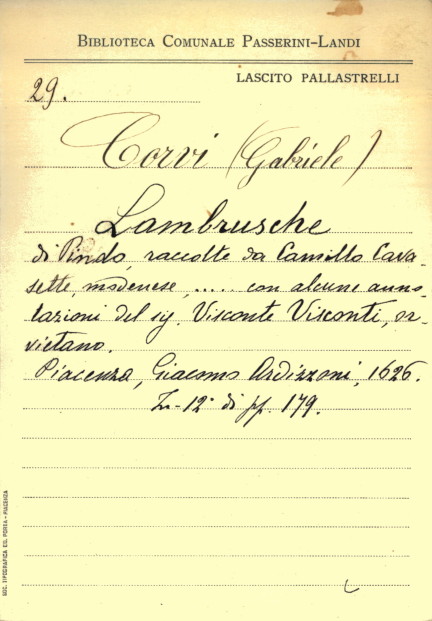 BIBLIOTECA COMUNALE PASSERINI-LANDI
LASCITO PALLASTRELLI
29.
Corvi (Gabriele)
Lambrusche
di Pindo, raccolte da Camillo Cava-
sette, modenese, ..... con alcune anno-
tazioni del sig. Visconte Visconti, or-
vietano.
Piacenza, Giacomo Ardizzoni, 1626.
In-12° di pp. 179.
SOC. TIPOGRAFICA ED. PORTA - PIACENZA